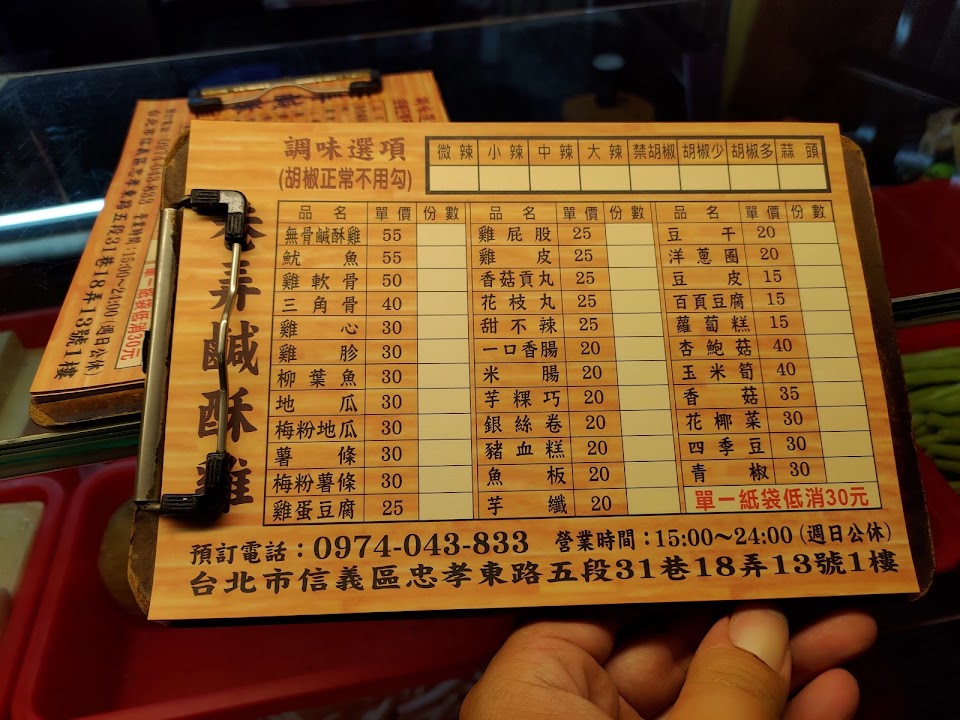 調味選項
(胡椒正常不用勾)
微辣 小辣 中辣 大辣 禁胡椒 胡椒少 胡椒多 蒜頭
巷弄鹹酥雞
品名 單價 份數
無骨鹹酥雞 55
魷魚 55
雞軟骨 50
三角骨 40
雞心 30
雞胗 30
柳葉魚 30
地瓜 30
梅粉地瓜 30
薯條 30
梅粉薯條 30
雞蛋豆腐 25
品名 單價 份數
雞屁股 25
雞皮 25
香菇貢丸 25
花枝丸 25
甜不辣 25
一口香腸 20
米腸 20
芋粿巧 20
銀絲卷 20
豬血糕 20
魚板 20
芋纖 20
品名 單價 份數
豆干 20
洋蔥圈 20
豆皮 15
百頁豆腐 15
蘿蔔糕 15
杏鮑菇 40
玉米筍 40
香菇 35
花椰菜 30
四季豆 30
青椒 30
單一紙袋低消30元
預訂電話：0974-043-833 營業時間：15:00～24:00(週日公休)
台北市信義區忠孝東路五段31巷18弄13號1樓